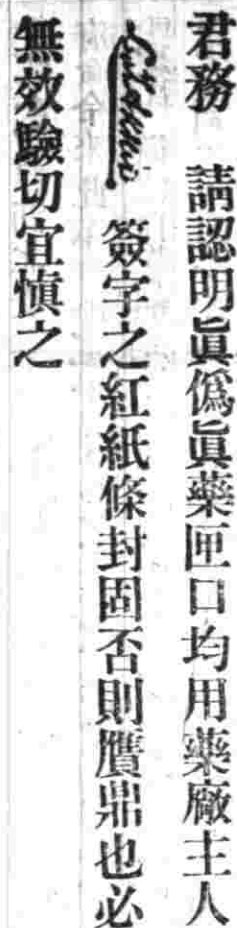 君務 請認明眞僞眞藥匣口均用藥廠主人
簽字之紅紙條封固否則贋鼎也必
無效驗切宜愼之